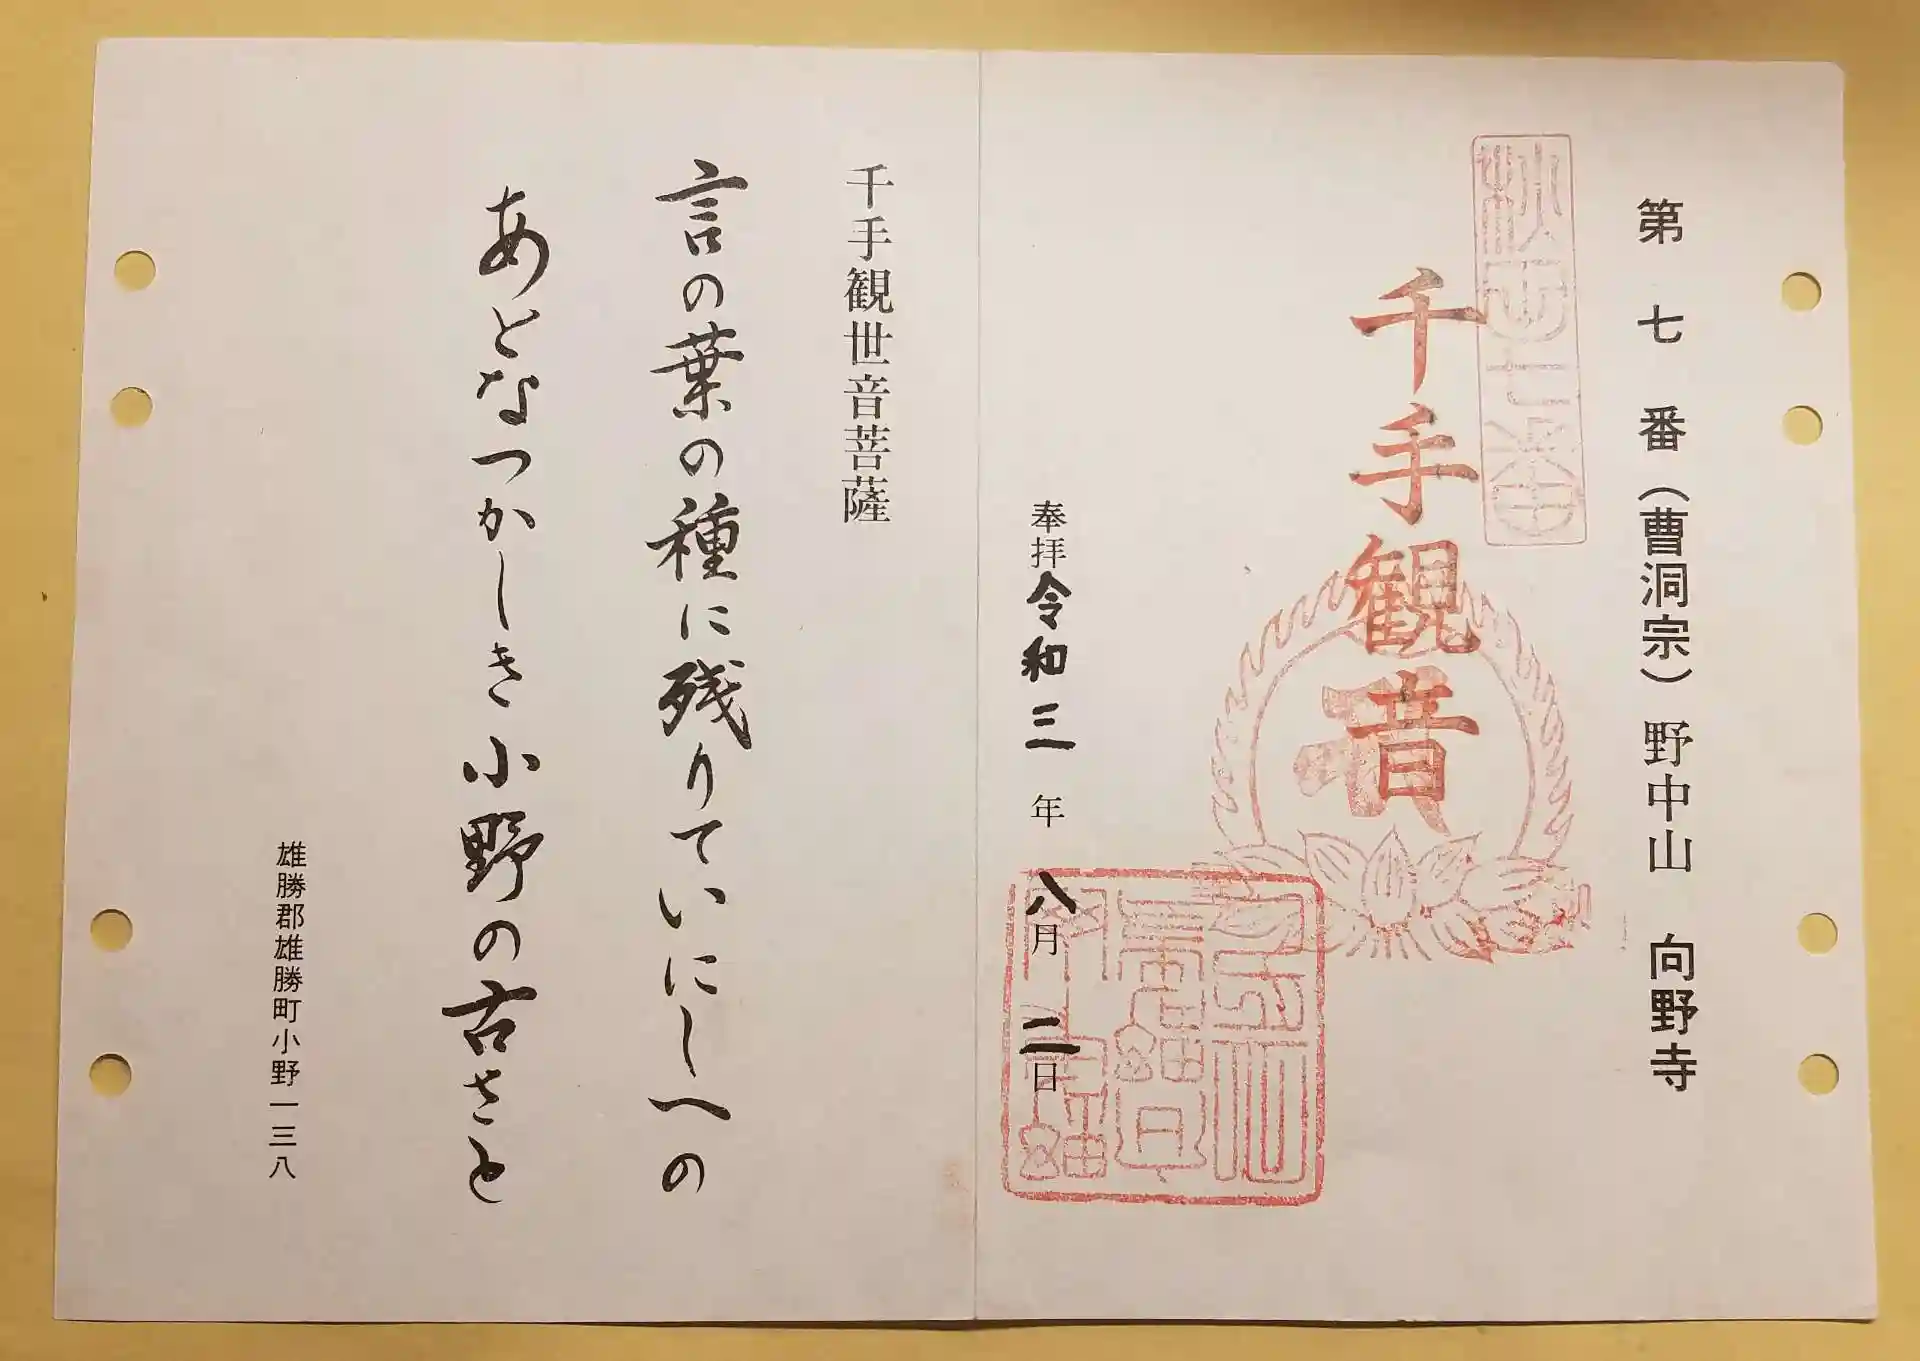 第七番（曹洞宗）野中山　向野寺
千手観音
奉拝令和三年八月二日
千手観世音菩薩
言の葉の種に残りていにしへの
あとなつかしき小野の古さと
雄勝郡雄勝町小野一三八